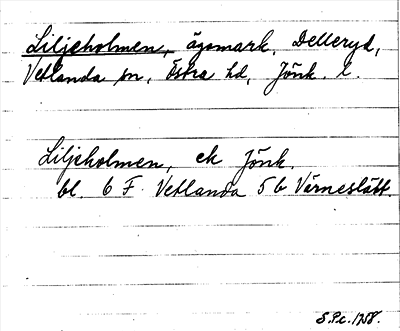 Liljeholmen, ägomark, Delleryd,
Vetlanda sn, Östra hd, Jönk. l.
Liljeholmen, ek Jönk.
bl. 6 F Vetlanda 5 b Värneslätt.
S.Pc. 1958.